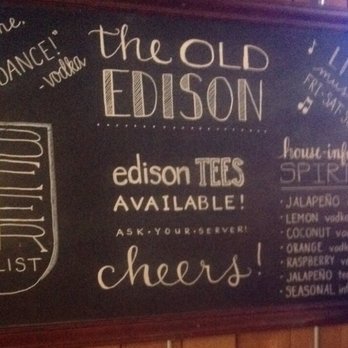 DANCE!"
-vodka
LIST
the OLD
EDISON
edison TEES
AVAILABLE!
ASK·YOUR·SERVER!
cheers!
FRI·SAT·S
house-inf
SPIR
·JALAPEÑO
·LEMON vodk
·COCONUT vod
·ORANGE vodk
·RASPBERRY v
·JALAPEÑO te
·SEASONAL inf